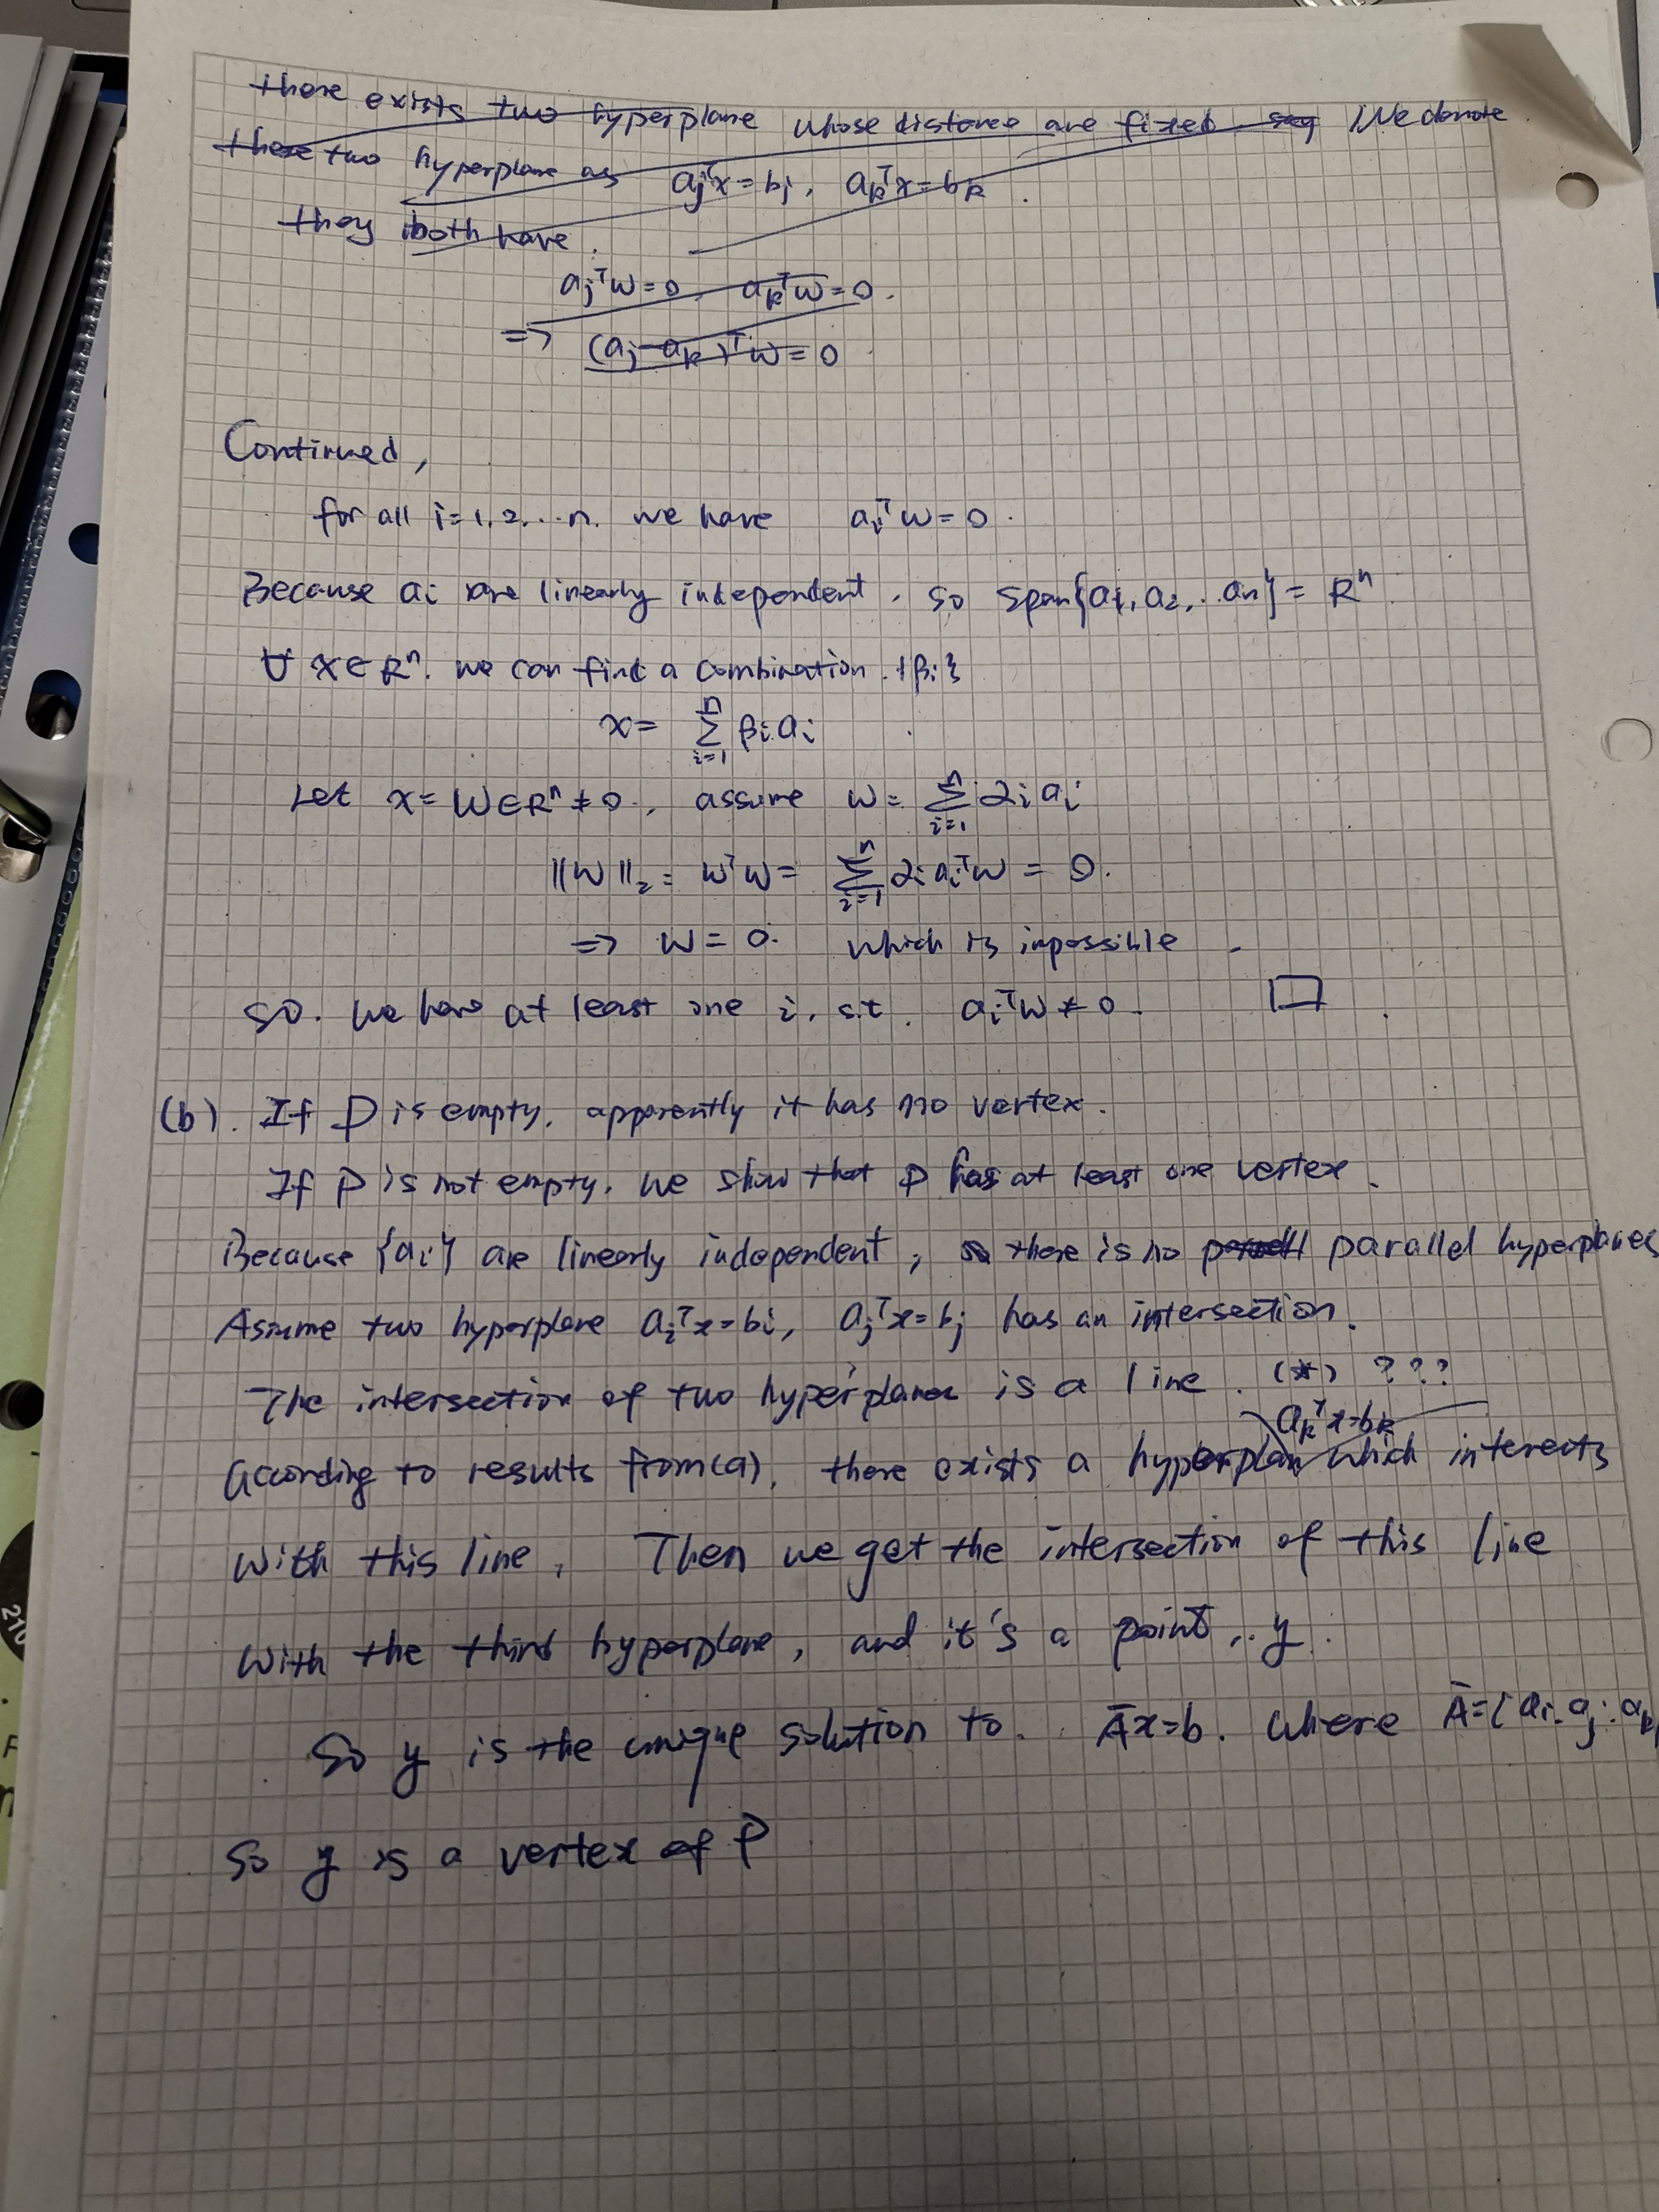 there exists two hyperplane whose distance are fixed. We denote
these two hyperplane as ajᵀx=bj, akᵀx=bk.
they both have.
ajᵀw=0, akᵀw=0.
=> (aj-ak)ᵀw=0
Continued,
for all i=1,2,...n. we have aiᵀw=0.
Because ai are linearly independent. so span{a1,a2,..an}=Rⁿ
∀ x∈Rⁿ. we can find a combination {βi}
x= Σ_{i=1}^{n} βi ai
Let x=w∈Rⁿ≠0., assume w= Σ_{i=1}^{n} 2i ai
||w||₂ = wᵀw= Σ_{i=1}^{n} 2i aiᵀw = 0.
=> w=0. which is impossible.
so. we have at least one i, s.t. aiᵀw≠0. □
(b). If P is empty, apparently it has no vertex.
If P is not empty, we show that P has at least one vertex.
Because {ai} are linearly independent, so there is no parallel hyperplanes
Assume two hyperplane aiᵀx=bi, ajᵀx=bj has an intersection.
The intersection of two hyperplanes is a line. (*) ???
akᵀx=bk
According to results from(a), there exists a hyperplane which interects
with this line. Then we get the intersection of this line
with the third hyperplane, and it's a point, y.
So y is the unique solution to. Āx=b. where Ā=[ai.aj.ak
So y is a vertex of P
210